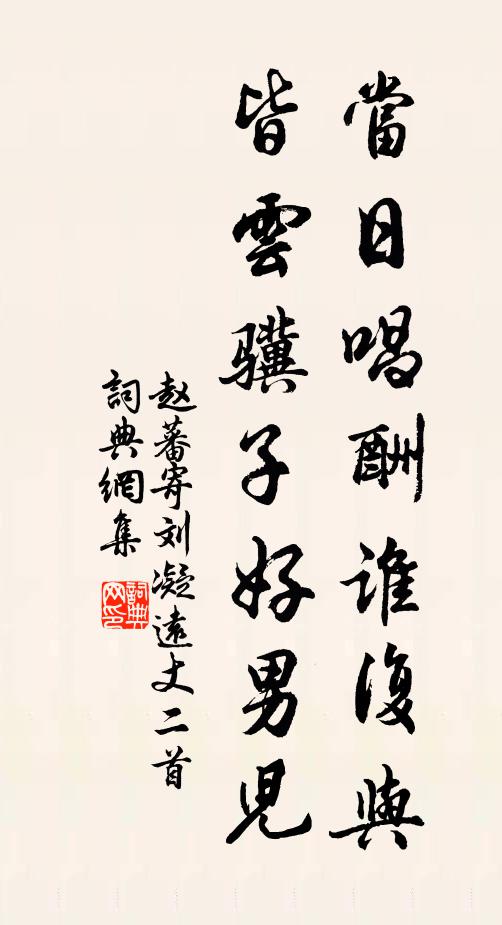 當日唱酬誰復與
皆雲驥子好男兒
赵蕃寄刘凝遠丈二首
詞典網集
詞典網印